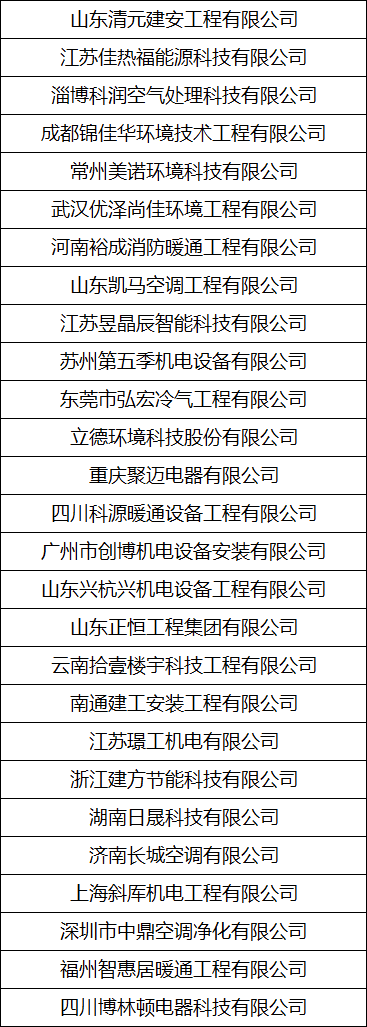 山东清元建安工程有限公司
江苏佳热福能源科技有限公司
淄博科润空气处理科技有限公司
成都锦佳华环境技术工程有限公司
常州美诺环境科技有限公司
武汉优泽尚佳环境工程有限公司
河南裕成消防暖通工程有限公司
山东凯马空调工程有限公司
江苏昱晶辰智能科技有限公司
苏州第五季机电设备有限公司
东莞市弘宏冷气工程有限公司
立德环境科技股份有限公司
重庆聚迈电器有限公司
四川科源暖通设备工程有限公司
广州市创博机电设备安装有限公司
山东兴杭兴机电设备工程有限公司
山东正恒工程集团有限公司
云南拾壹楼宇科技工程有限公司
南通建工安装工程有限公司
江苏璟工机电有限公司
浙江建方节能科技有限公司
湖南日晟科技有限公司
济南长城空调有限公司
上海斜厍机电工程有限公司
深圳市中鼎空调净化有限公司
福州智惠居暖通工程有限公司
四川博林顿电器科技有限公司